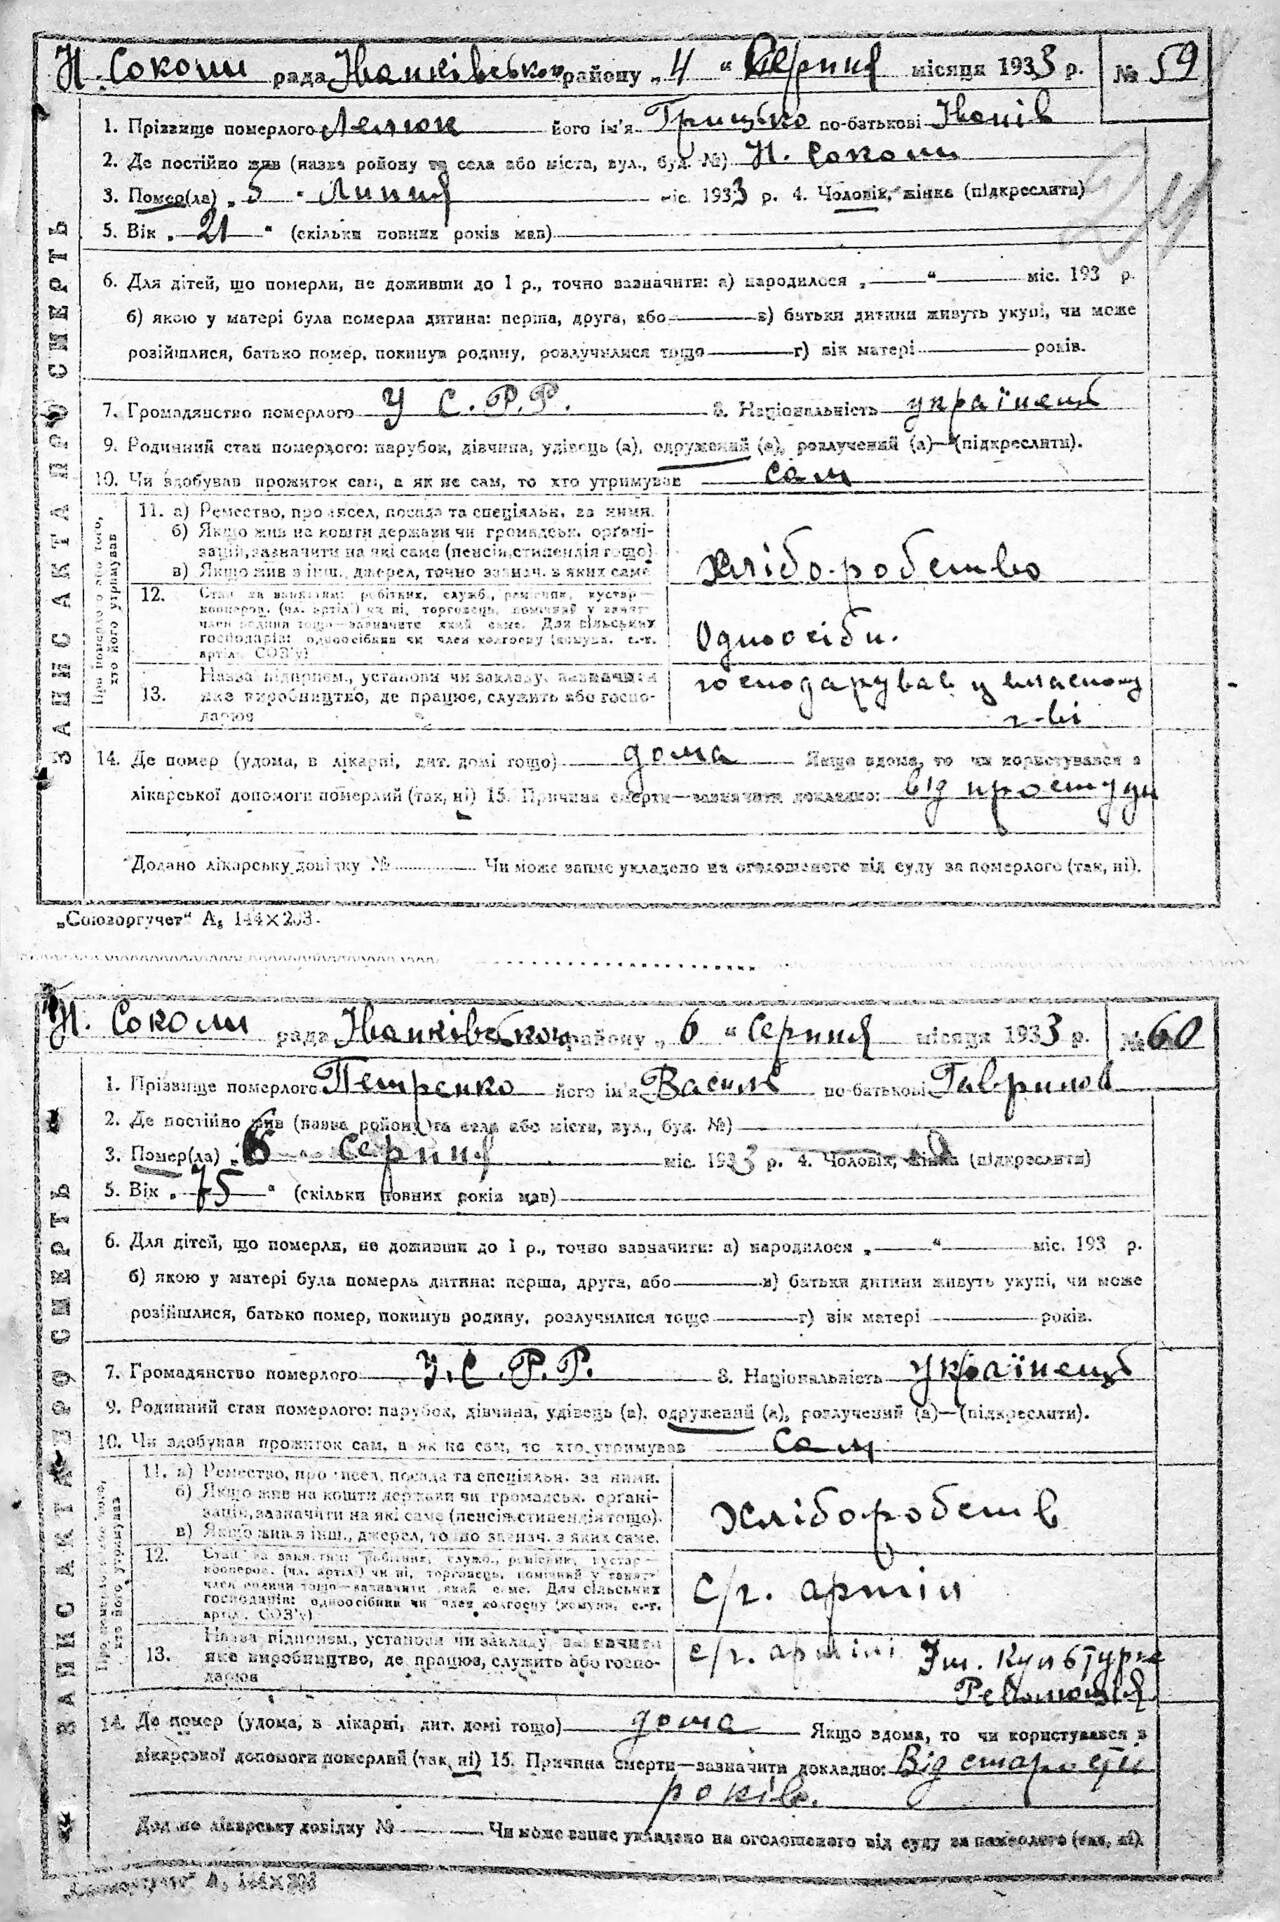 Н. Соколи рада Іванківського району „4“ Серпня місяця 1933 р. № 59
1. Прізвище померлого Ленюк його ім'я Грицько по-батькові Іванів
2. Де постійно жив (назва району та села або міста, вул., буд. №) Н. Соколи
3. Помер(ла) „5“ Липня міс. 1933 р. 4. Чоловік, жінка (підкреслити)
5. Вік „21“ (скільки повних років мав)
6. Для дітей, що померли, не доживши до 1 р., точно зазначити: а) народилося „ “ міс. 193 р.
б) якою у матері була померла дитина: перша, друга, або в) батьки дитини живуть укупі, чи може
розійшлися, батько помер, покинув родину, розлучилися тощо г) вік матері років.
7. Громадянство померлого У С.Р.Р. 8. Національність українець
9. Родинний стан померлого: парубок, дівчина, удівець (а), одружений (а), розлучений (а)—(підкреслити).
10. Чи здобував прожиток сам, а як не сам, то хто утримував сам
ЗАПИС АКТА ПРО СМЕРТЬ
Про померло о або того, хто його утримував
11. а) Ремество, промисел, посада та спеціяльн. за ними.
б) Якщо жив на кошти держави чи громадськ. органі-
зацій, зазначити на які саме (пенсія, стипендія тощо)
в) Якщо жив з інш. джерел, точно зазнач. з яких саме
хліборобство
12. Стан за заняттям: робітник, служб., ремісник, кустар—
кооперов. (чл. артілі) чи ні, торговець, помічний у занят.
член родини тощо—зазначити який саме. Для сільських
господарів: одноосібник чи член колгоспу (комуни, с.-г.
артіл., СОЗ'у)
Одноосібн.
13. Назва підприєм., установи чи закладу, зазначити
яке виробництво, де працює, служить або госпо-
дарює
господарував у власному
г-ві
14. Де помер (удома, в лікарні, дит. домі тощо) дома Якщо вдома, то чи користувався з
лікарської допомоги померлий (так, ні) 15. Причина смерти—зазначити докладно: від простуди
Додано лікарську довідку № Чи може запис укладено на оголошеного від суду за померлого (так, ні).
„Союзоргучет“ А₅ 144×203.
24
Н. Соколи рада Іванківського району „6“ Серпня місяця 1933 р. № 60
1. Прізвище померлого Петренко його ім'я Василь по-батькові Гаврилов
2. Де постійно жив (назва району та села або міста, вул., буд. №)
3. Помер(ла) „6“ Серпня міс. 1933 р. 4. Чоловік, жінка (підкреслити)
5. Вік „75“ (скільки повних років мав)
6. Для дітей, що померли, не доживши до 1 р., точно зазначити: а) народилося „ “ міс. 193 р.
б) якою у матері була померла дитина: перша, друга, або в) батьки дитини живуть укупі, чи може
розійшлися, батько помер, покинув родину, розлучилися тощо г) вік матері років.
7. Громадянство померлого У.С.Р.Р. 8. Національність українець
9. Родинний стан померлого: парубок, дівчина, удівець (а), одружений (а), розлучений (а)—(підкреслити).
10. Чи здобував прожиток сам, а як не сам, то хто утримував сам
ЗАПИС АКТА ПРО СМЕРТЬ
Про померло о або того, хто його утримував
11. а) Ремество, промисел, посада та спеціяльн. за ними.
б) Якщо жив на кошти держави чи громадськ. органі-
зацій, зазначити на які саме (пенсія, стипендія тощо).
в) Якщо жив з інш. джерел, точно зазнач. з яких саме.
хліборобств
12. Стан за заняттям: робітник, служб., ремісник, кустар—
кооперов. (чл. артілі) чи ні, торговець, помічний у занят.
член родини тощо—зазначити який саме. Для сільських
господарів: одноосібник чи член колгоспу (комуни, с.-г.
артіл., СОЗ'у)
с/г. артіл
13. Назва підприєм., установи чи закладу, зазначити
яке виробництво, де працює, служить або госпо-
дарює
с/г. артілі Ім. Культурна
Революція
14. Де помер (удома, в лікарні, дит. домі тощо) дома Якщо вдома, то чи користувався з
лікарської допомоги померлий (так, ні) 15. Причина смерти—зазначити докладно: Від старости
років.
Додано лікарську довідку № Чи може запис укладено на оголошеного від суду за померлого (так, ні).
„Союзоргучет“ А₅ 144×203